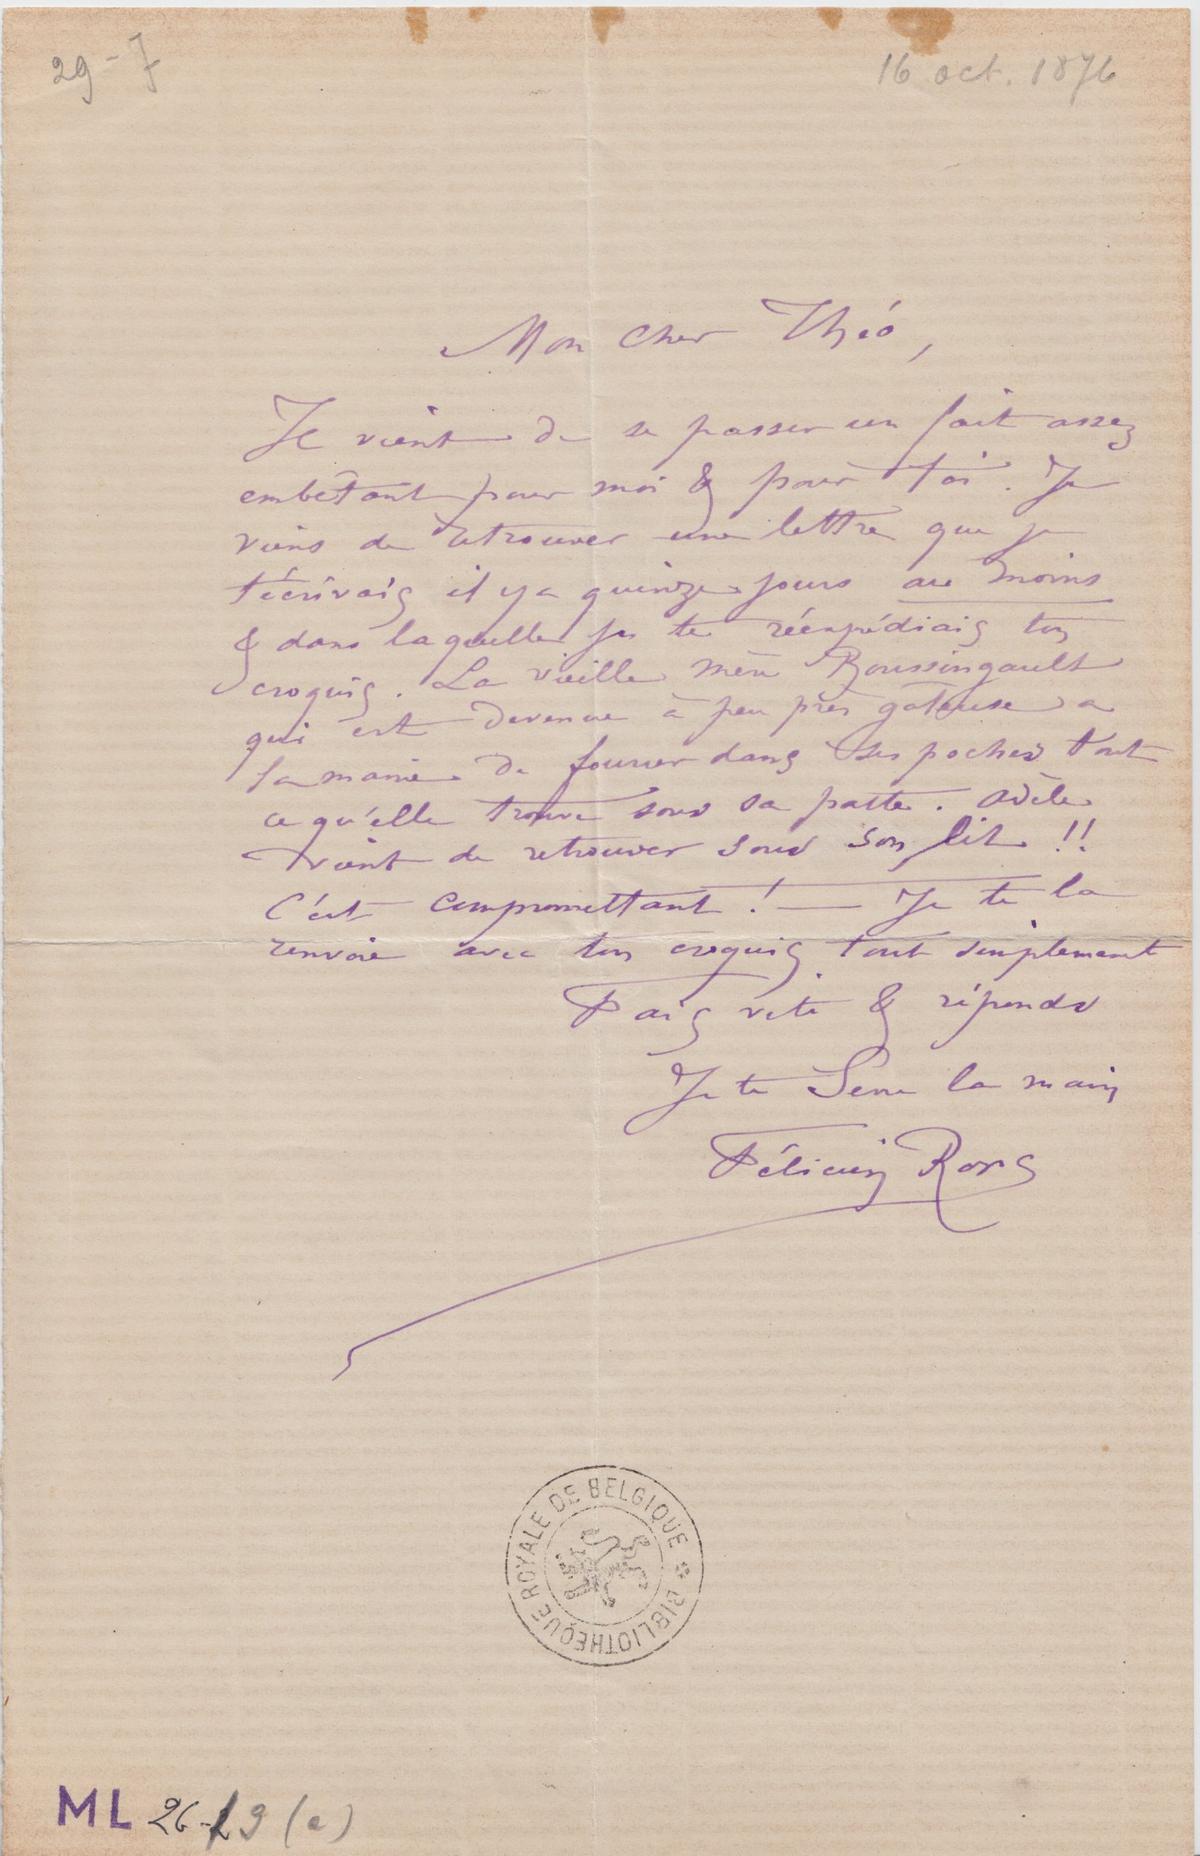 29-7
16 oct. 1876
Mon cher Théo,
Il vient de se passer un fait assez
embêtant pour moi & pour toi. Je
viens de retrouver une lettre que je
t'écrivais il y a quinze jours au moins
& dans laquelle je te réexpédiais ton
croquis. La vieille mère Boussingault
qui est devenue à peu près gateuse a
la manie de fourrer dans ses poches tout
ce qu'elle trouve sous sa patte. Adèle
vient de retrouver sous son lit !!
C'est compromettant ! — Je te la
renvoie avec ton croquis tout simplement
Fais vite & réponds
Je te serre la main
Félicien Rops
BIBLIOTHÈQUE ROYALE DE BELGIQUE
ML 26-29 (a)